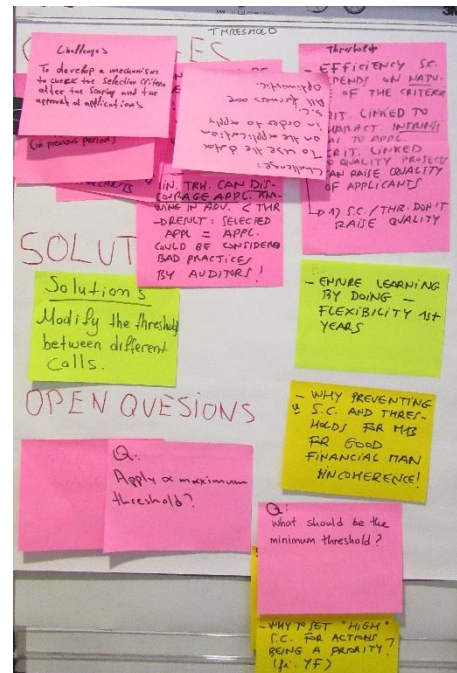 THRESHOLD
Challenges
To develop a mechanism
to check the selection criteria
after the scoring and the
approval of applications
(in previous period)
Challenge:
To use the data
on the application
in order to apply
S.C.
All farmers are
optimistic.
MIN. TRH. CAN DIS-
COURAGE APPL. KNO-
WING IN ADV. < THR
RESULT: SELECTED
APPL = APPL.
COULD BE CONSIDERED
BAD PRACTICES
BY AUDITORS!
Threshold
- EFFICIENCY S.C.
DEPENDS ON NATU-
OF THE CRITERIA
CRIT. LINKED TO
CHARACT. INTRINS
TO APPL.
CRIT. LINKED
TO QUALITY PROJECT
CAN RAISE QUALITY
OF APPLICANTS
1) S.C./THR. DON'T
RAISE QUALITY
SOLUT
Solutions
Modify the threshold
between different
calls.
- ENSURE LEARNING
BY DOING -
FLEXIBILITY 1st
YEARS
OPEN QUESIONS
Q:
Apply a maximum
threshold?
- WHY PREVENTING
S.C. AND THRES-
HOLDS FOR
FOR GOOD
FINANCIAL MAN
INCOHERENCE!
Q:
What should be the
minimum threshold?
- WHY TO SET "HIGH"
S.C. FOR ACTIONS
BEING A PRIORITY?
(fi. YF)